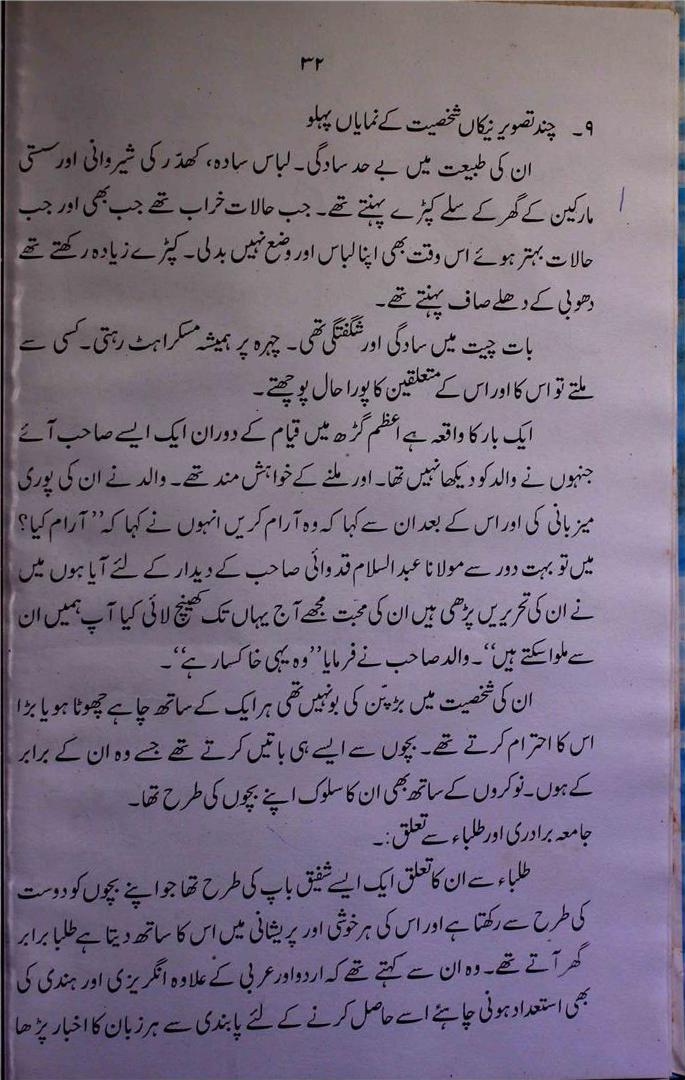 ۳۲
۹۔ چند تصویر نیکاں شخصیت کے نمایاں پہلو
ان کی طبیعت میں بے حد سادگی۔ لباس سادہ، کھدّر کی شیروانی اور سستی
مارکین کے گھر کے سلے کپڑے پہنتے تھے۔ جب حالات خراب تھے جب بھی اور جب
حالات بہتر ہوئے اس وقت بھی اپنا لباس اور وضع نہیں بدلی۔ کپڑے زیادہ رکھتے تھے
دھوبی کے دھلے صاف پہنتے تھے۔
بات چیت میں سادگی اور شگفتگی تھی۔ چہرہ پر ہمیشہ مسکراہٹ رہتی۔ کسی سے
ملتے تو اس کا اور اس کے متعلقین کا پورا حال پوچھتے۔
ایک بار کا واقعہ ہے اعظم گڑھ میں قیام کے دوران ایک ایسے صاحب آئے
جنہوں نے والد کو دیکھا نہیں تھا۔ اور ملنے کے خواہش مند تھے۔ والد نے ان کی پوری
میزبانی کی اور اس کے بعد ان سے کہا کہ وہ آرام کریں انہوں نے کہا کہ ’’آرام کیا؟
میں تو بہت دور سے مولانا عبدالسلام قدوائی صاحب کے دیدار کے لئے آیا ہوں میں
نے ان کی تحریریں پڑھی ہیں ان کی محبت مجھے آج یہاں تک کھینچ لائی کیا آپ ہمیں ان
سے ملوا سکتے ہیں‘‘۔ والد صاحب نے فرمایا ’’وہ یہی خاکسار ہے‘‘۔
ان کی شخصیت میں بڑپّن کی بو نہیں تھی ہر ایک کے ساتھ چاہے چھوٹا ہو یا بڑا
اس کا احترام کرتے تھے۔ بچوں سے ایسے ہی باتیں کرتے تھے جسے وہ ان کے برابر
کے ہوں۔ نوکروں کے ساتھ بھی ان کا سلوک اپنے بچوں کی طرح تھا۔
جامعہ برادری اور طلباء سے تعلق:۔
طلباء سے ان کا تعلق ایک ایسے شفیق باپ کی طرح تھا جو اپنے بچوں کو دوست
کی طرح سے رکھتا ہے اور اس کی ہر خوشی اور پریشانی میں اس کا ساتھ دیتا ہے طلبا برابر
گھر آتے تھے۔ وہ ان سے کہتے تھے کہ اردو اور عربی کے علاوہ انگریزی اور ہندی کی
بھی استعداد ہونی چاہئے اسے حاصل کرنے کے لئے پابندی سے ہر زبان کا اخبار پڑھا